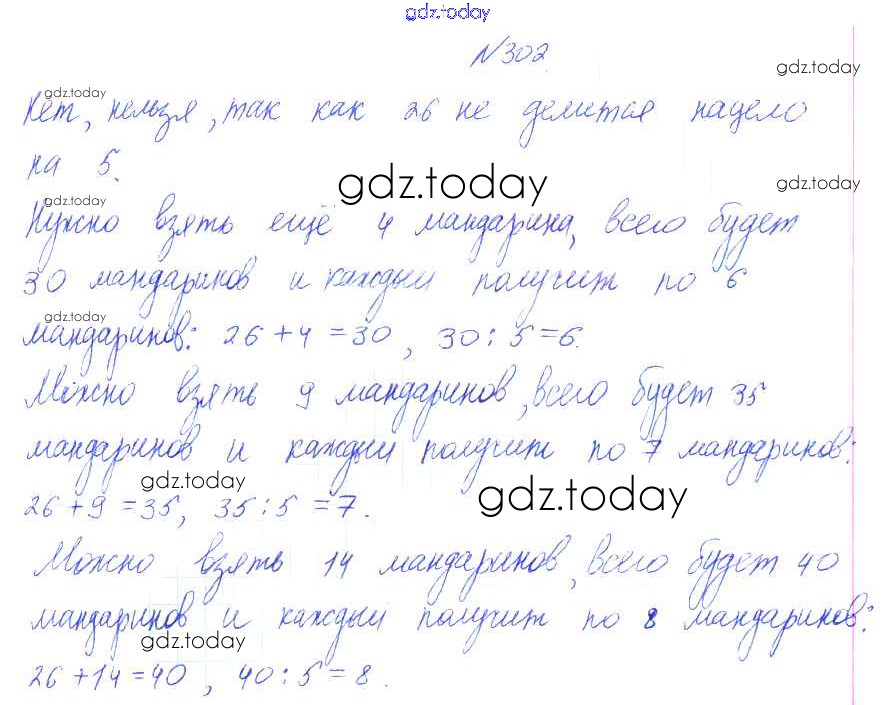 gdz.today
№302.
gdz.today
gdz.today
Нет, нельзя, так как 26 не делится нацело
на 5.
gdz.today
gdz.today
gdz.today
Нужно взять ещё 4 мандарина, всего будет
30 мандаринов и каждый получит по 6
gdz.today
мандаринов: 26 + 4 = 30, 30 : 5 = 6.
Можно взять 9 мандаринов, всего будет 35
мандаринов и каждый получит по 7 мандаринов:
gdz.today
gdz.today
26 + 9 = 35, 35 : 5 = 7.
Можно взять 14 мандаринов, всего будет 40
мандаринов и каждый получит по 8 мандаринов:
gdz.today
26 + 14 = 40, 40 : 5 = 8.